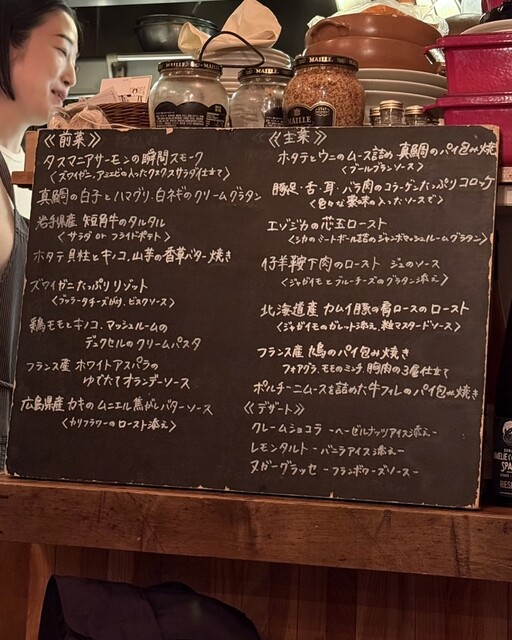 MAILLE
MAILLE
MAILLE
MAILLE
≪前菜≫
タスマニアサーモンの瞬間スモーク
<ズワイガニ、アボカドの入ったクスクスサラダ仕立て>
真鯛の白子とハマグリ・白ネギのクリームグラタン
岩手県産 短角牛のタルタル
<サラダ or フライドポテト>
ホタテ貝柱とキノコ、山芋の香草バター焼き
ズワイガニたっぷりリゾット
<ブッラータチーズがけ、ビスクソース>
鶏モモとキノコ、マッシュルームの
デュクセルのクリームパスタ
フランス産 ホワイトアスパラの
ゆでたてオランデーソース
広島県産 カキのムニエル焦がしバターソース
<カリフラワーのロースト添え>
≪主菜≫
ホタテとウニのムース詰め 真鯛のパイ包み焼
<ブールブランソース>
豚足・舌・耳・バラ肉のコラーゲンたっぷりコロッケ
<色々な薬味の入ったソースで>
エゾジカの芯玉ロースト
<シカのミートボール詰めジャンボマッシュルームグラタン>
仔羊鞍下肉のロースト ジュのソース
<ジャガイモとブルーチーズのグラタン添え>
北海道産 カムイ豚の肩ロースのロースト
<ジャガイモのガレット添え、粒マスタードソース>
フランス産 鳩のパイ包み焼き
フォアグラ、モモのミンチ、胸肉の3層仕立て
ポルチーニムースを詰めた牛フィレのパイ包み焼き
≪デザート≫
クレームショコラ -ヘーゼルナッツアイス添え-
レモンタルト -バニラアイス添え-
ヌガーグラッセ -フランボワーズソース-